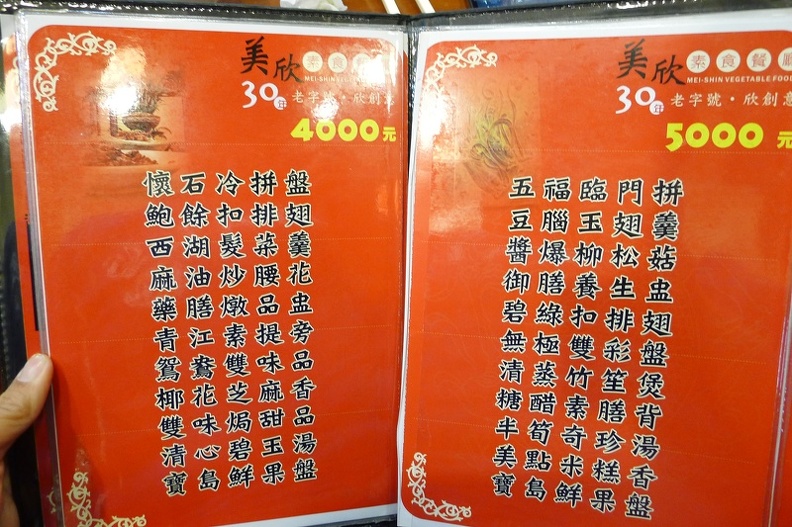 美欣 素食餐
MEI-SHIN VEGETABLE
30年 老字號·欣創意
4000元
懷石冷拼盤
鮑餘扣排翅
西湖髮菜羹
麻油炒腰花
藥膳燉品盅
青江素提旁
鴛鴦雙味品
椰花芝麻香
雙味焗甜品
清心碧玉湯
寶島鮮果盤
美欣 素食餐廳
MEI-SHIN VEGETABLE FOOD
30年 老字號·欣創意
5000元
五福臨門拼
豆腦玉翅羹
醬爆柳松菇
御膳養生盅
碧綠扣排翅
無極雙彩盤
清蒸竹笙煲
糖醋素膳背
半筍奇珍湯
美點米糕香
寶島鮮果盤